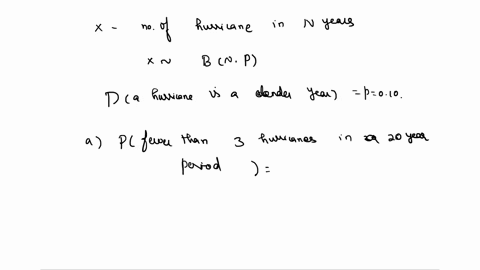 x - no. of hurricane in N years
x ~ B(N, P)
P(a hurricane is a calender year) = p = 0.10.
a) P(fewer than 3 hurricanes in a 20 year
period) =